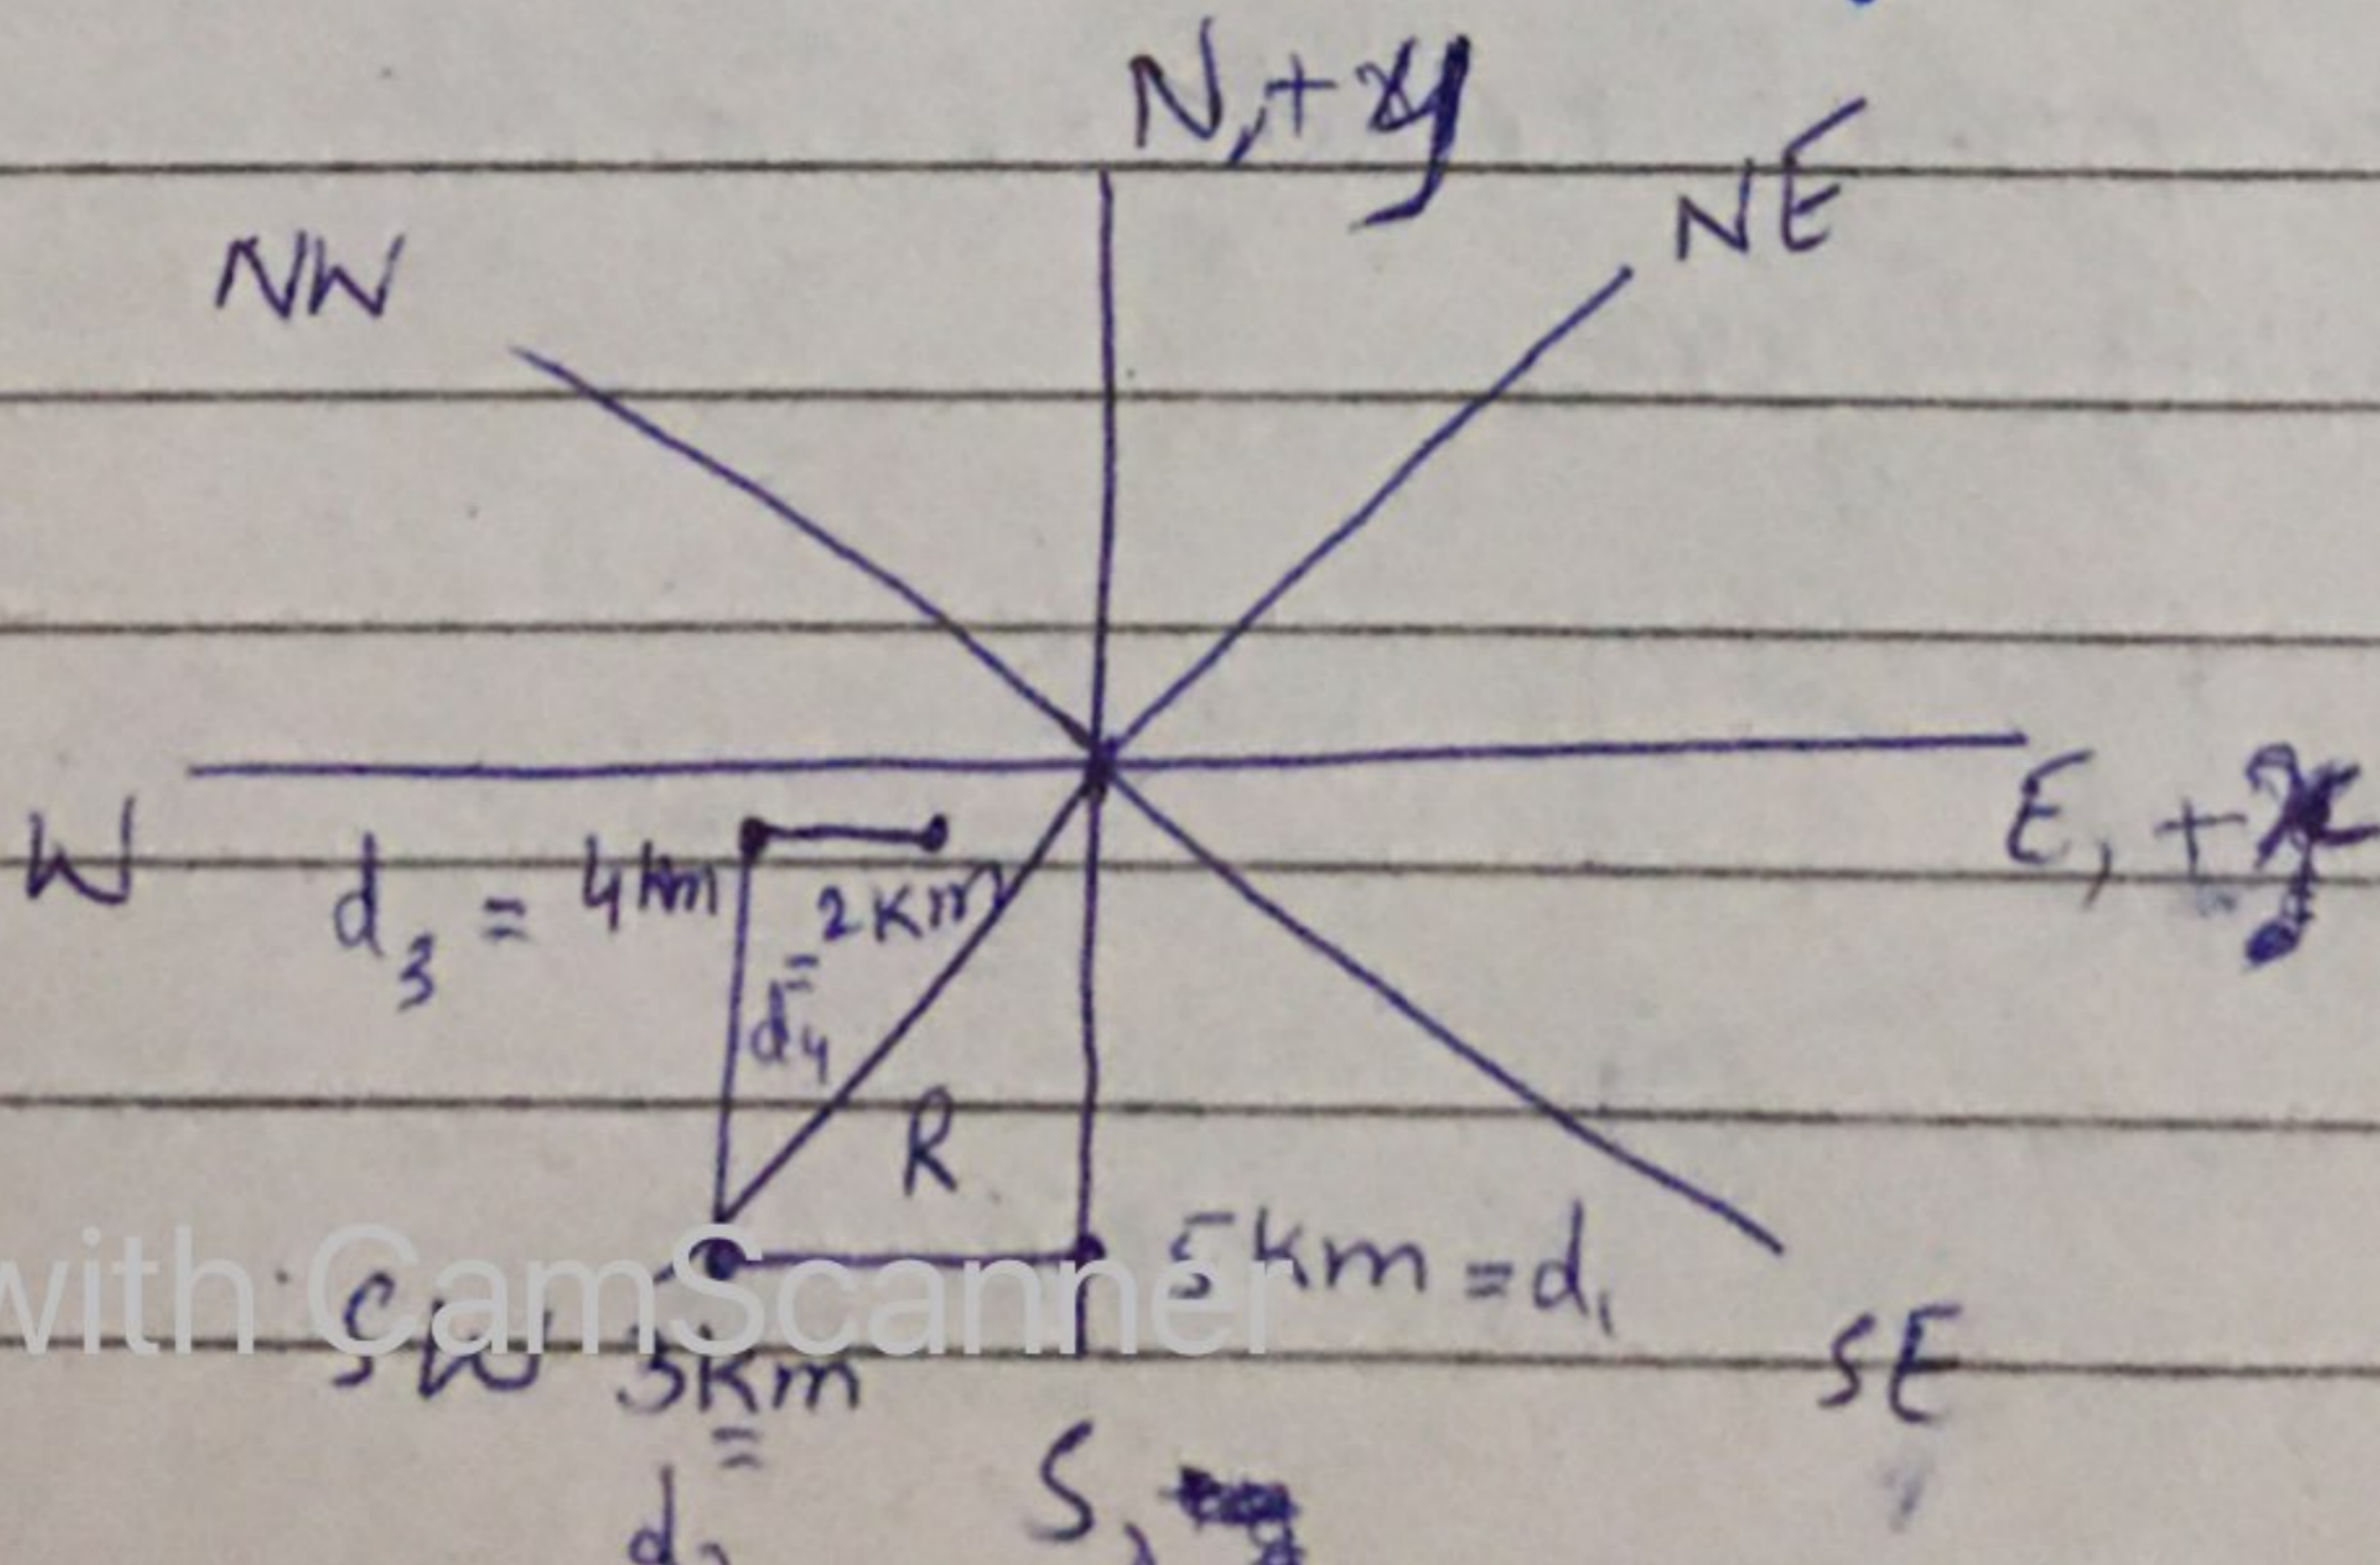 N, + y
NE
NW
E, +
W
d3 = 4km
2km
=
d4
R
5km = d1
with CamScanner
SW 3km
SE
=
S,